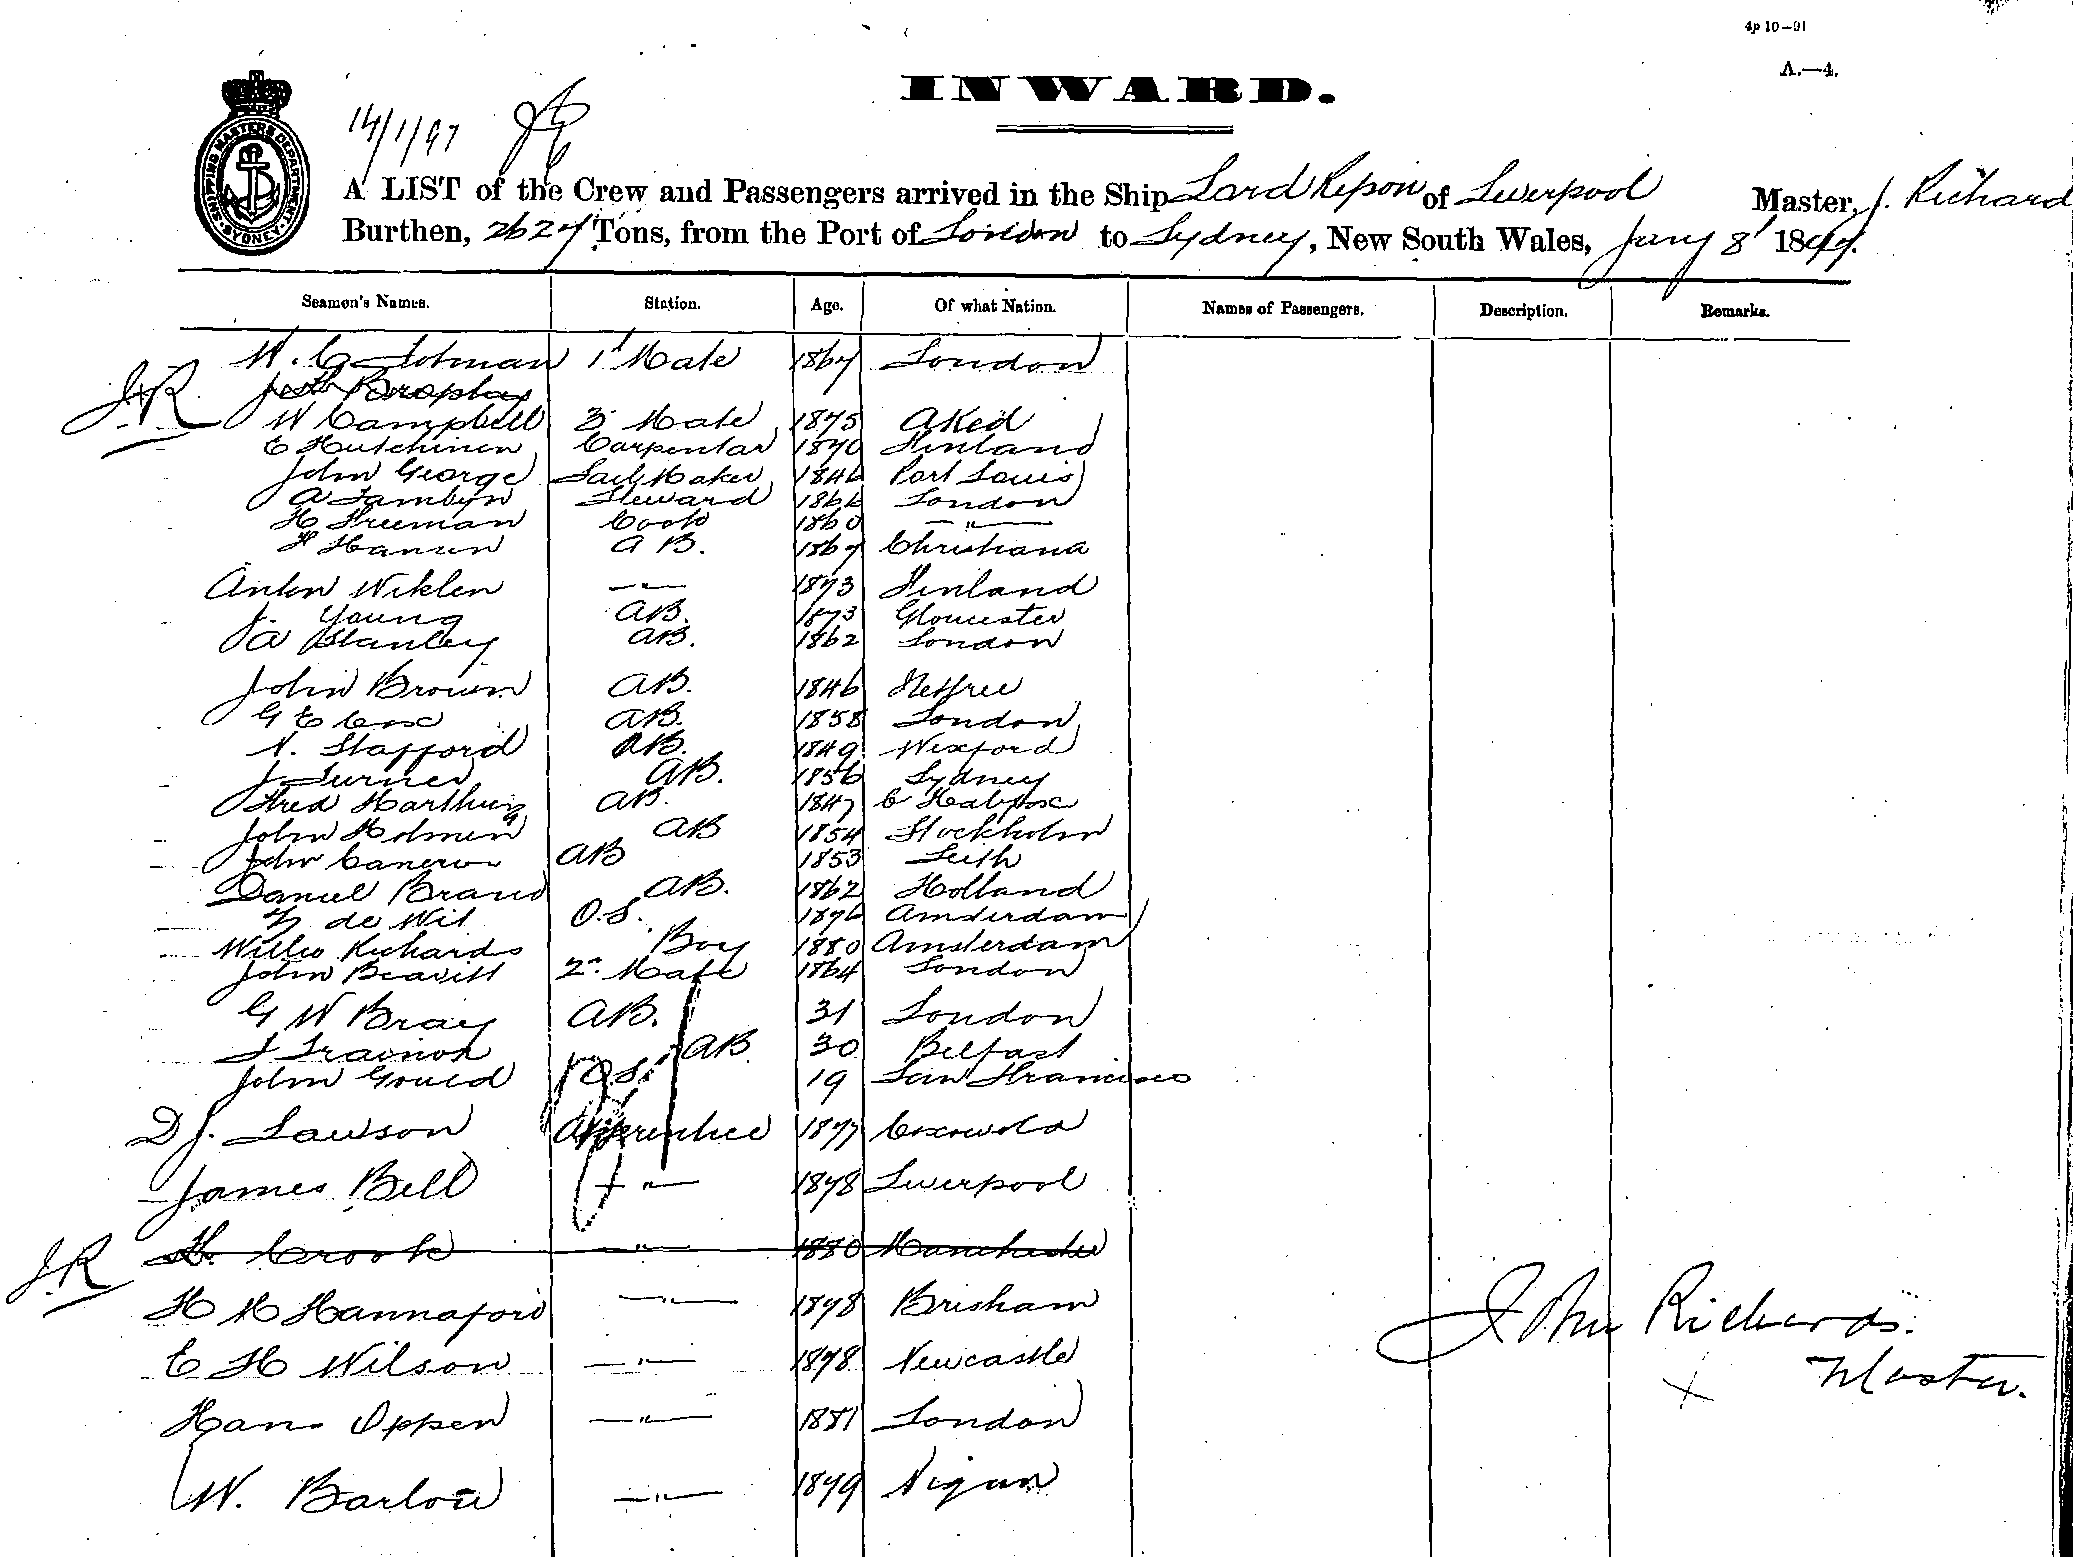 4p 10—91
A.—4.
INWARD.
SHIPPING MASTERS DEPARTMENT SYDNEY
14/1/97
A LIST of the Crew and Passengers arrived in the Ship Lord Ripon of Liverpool Master, J. Richard
Burthen, 2627 Tons, from the Port of London to Sydney, New South Wales, Jany 8' 1897.
Seamen's Names. Station. Age. Of what Nation. Names of Passengers. Description. Remarks.
W. G. 1st Mate 1867 London
J.R. Brophy
W Campbell 3 Mate 1875 
E Hutchinen Carpentar 1870 Finland
John George Sail Maker 1846 Port Louis
A Tamblyn Steward 1866 London
H Freeman Cook 1860 —"—
F Hansen A B. 1867 Christiana
Anton Wiklen —"— 1873 Finland
J. Young AB. 1873 Gloucester
A Stanley AB. 1862 London
John Brown AB. 1846
G E Cox AB. 1858 London
N. Stafford AB. 1849 Wexford
J Turner AB. 1856 Sydney
Fred Harthing AB. 1847
John Holmen AB 1854 Stockholm
John Cameron AB 1853 Leith
Daniel Brand AB. 1862 Holland
de Wit O.S. 1876 Amsterdam
Willie Richards Boy 1880 Amsterdam
John Beavitt 2n Mate 1864 London
G W Bray AB. 31 London
J Traenor AB. 30 Belfast
John Gould O.S. 19 San Francisco
D J. Lawson Apprentice 1877 Coxwold
James Bell —"— 1878 Liverpool
J.R H. Crook —"— 1880 Manchester
H M Hannaford —"— 1878 Brixham
E H Wilson —"— 1878 Newcastle
Hans Oppen —"— 1881 London
W. Barlow —"— 1879 Wigan
John Richards.
Master.